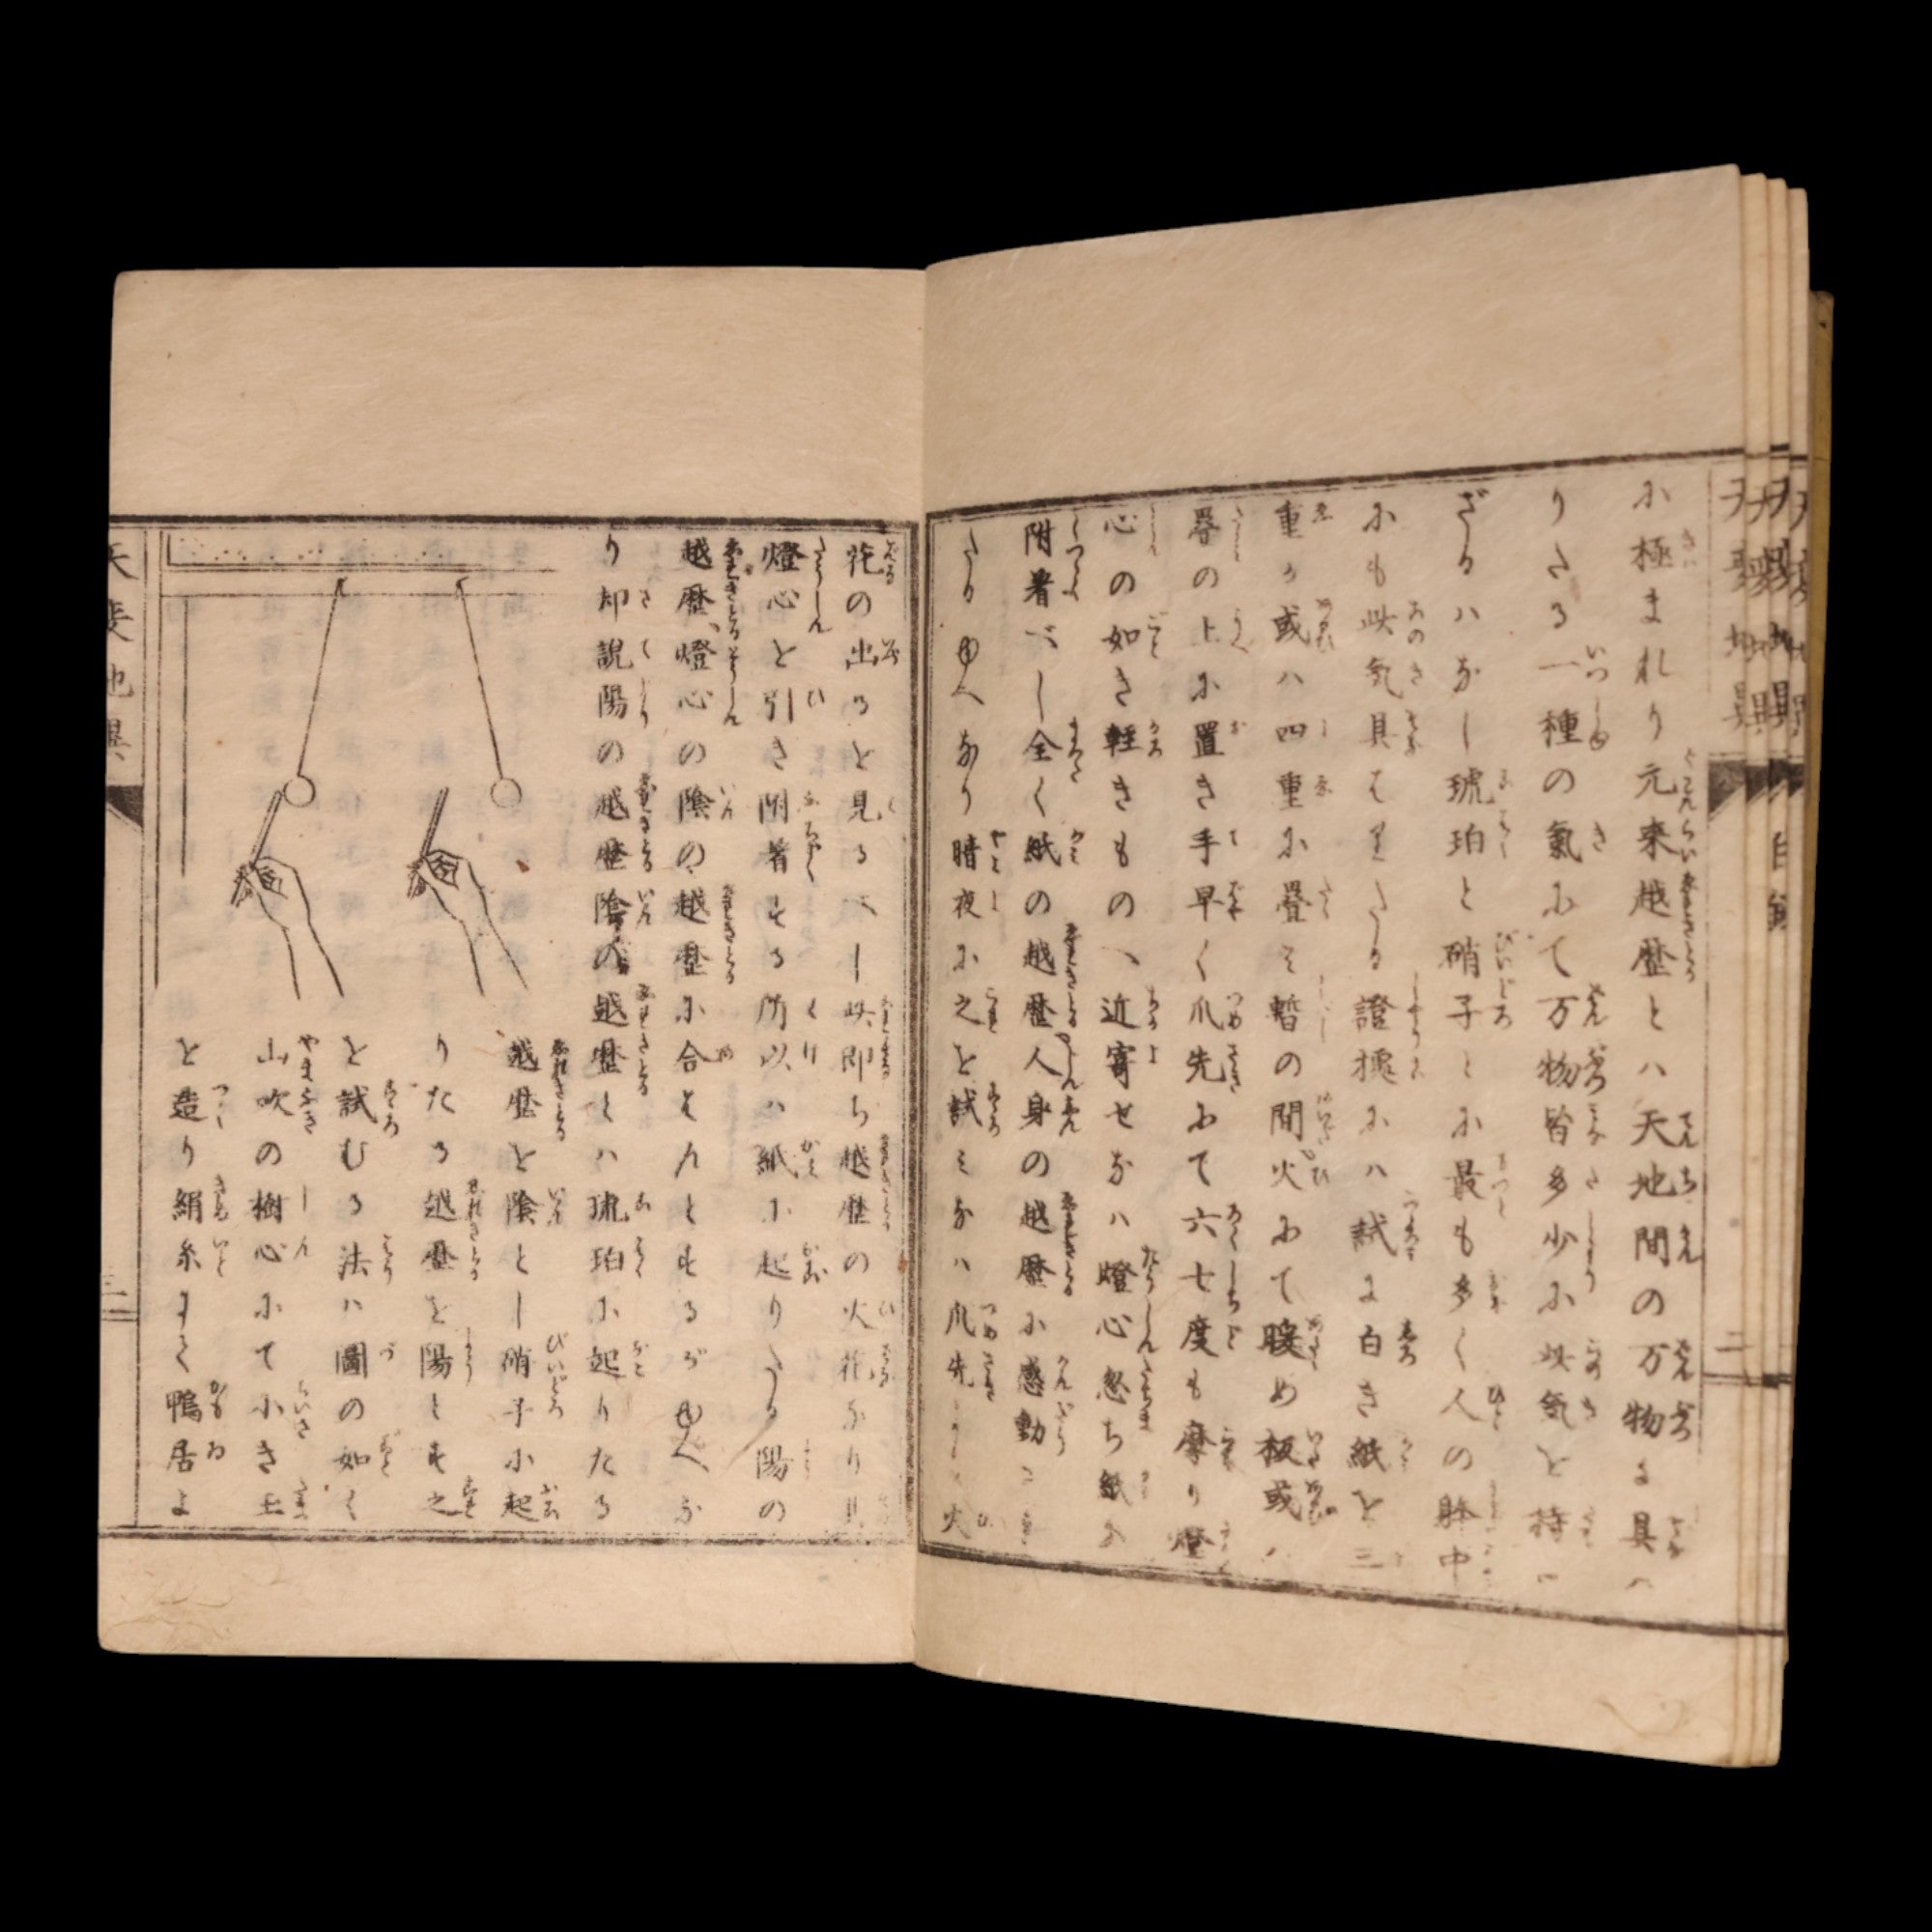 に極まれり元来越歴とハ天地間の万物に具ハ
りたる一種の氣にて万物皆多少に此気を持
ざるハなし琥珀と硝子とに最も多く人の躰中
にも此気具はりたる證據にハ試に白き紙を三
重か或ハ四重に疊ミ暫の間火にて暖め板或ハ
の上に置き手早く爪先にて六七度も摩り燈
心の如き軽きものへ近寄せなハ燈心忽ち紙に
附着べし全く紙の越歴人身の越歴に感動
たるゆへなり暗夜に之を試ミなハ爪先より火
花の出るを見るべし此即ち越歴の火花なり
燈心を引き附着する所以ハ紙に起りたる陽の
越歴燈心の陰の越歴に合せんとするがゆへな
り却説陽の越歴陰の越歴とハ琥珀に起りたる
越歴を陰とし硝子に起
りたる越歴を陽とす之
を試むる法ハ圖の如く
山吹の樹心にて小き玉
を造り絹糸にて鴨居よ
天変地異